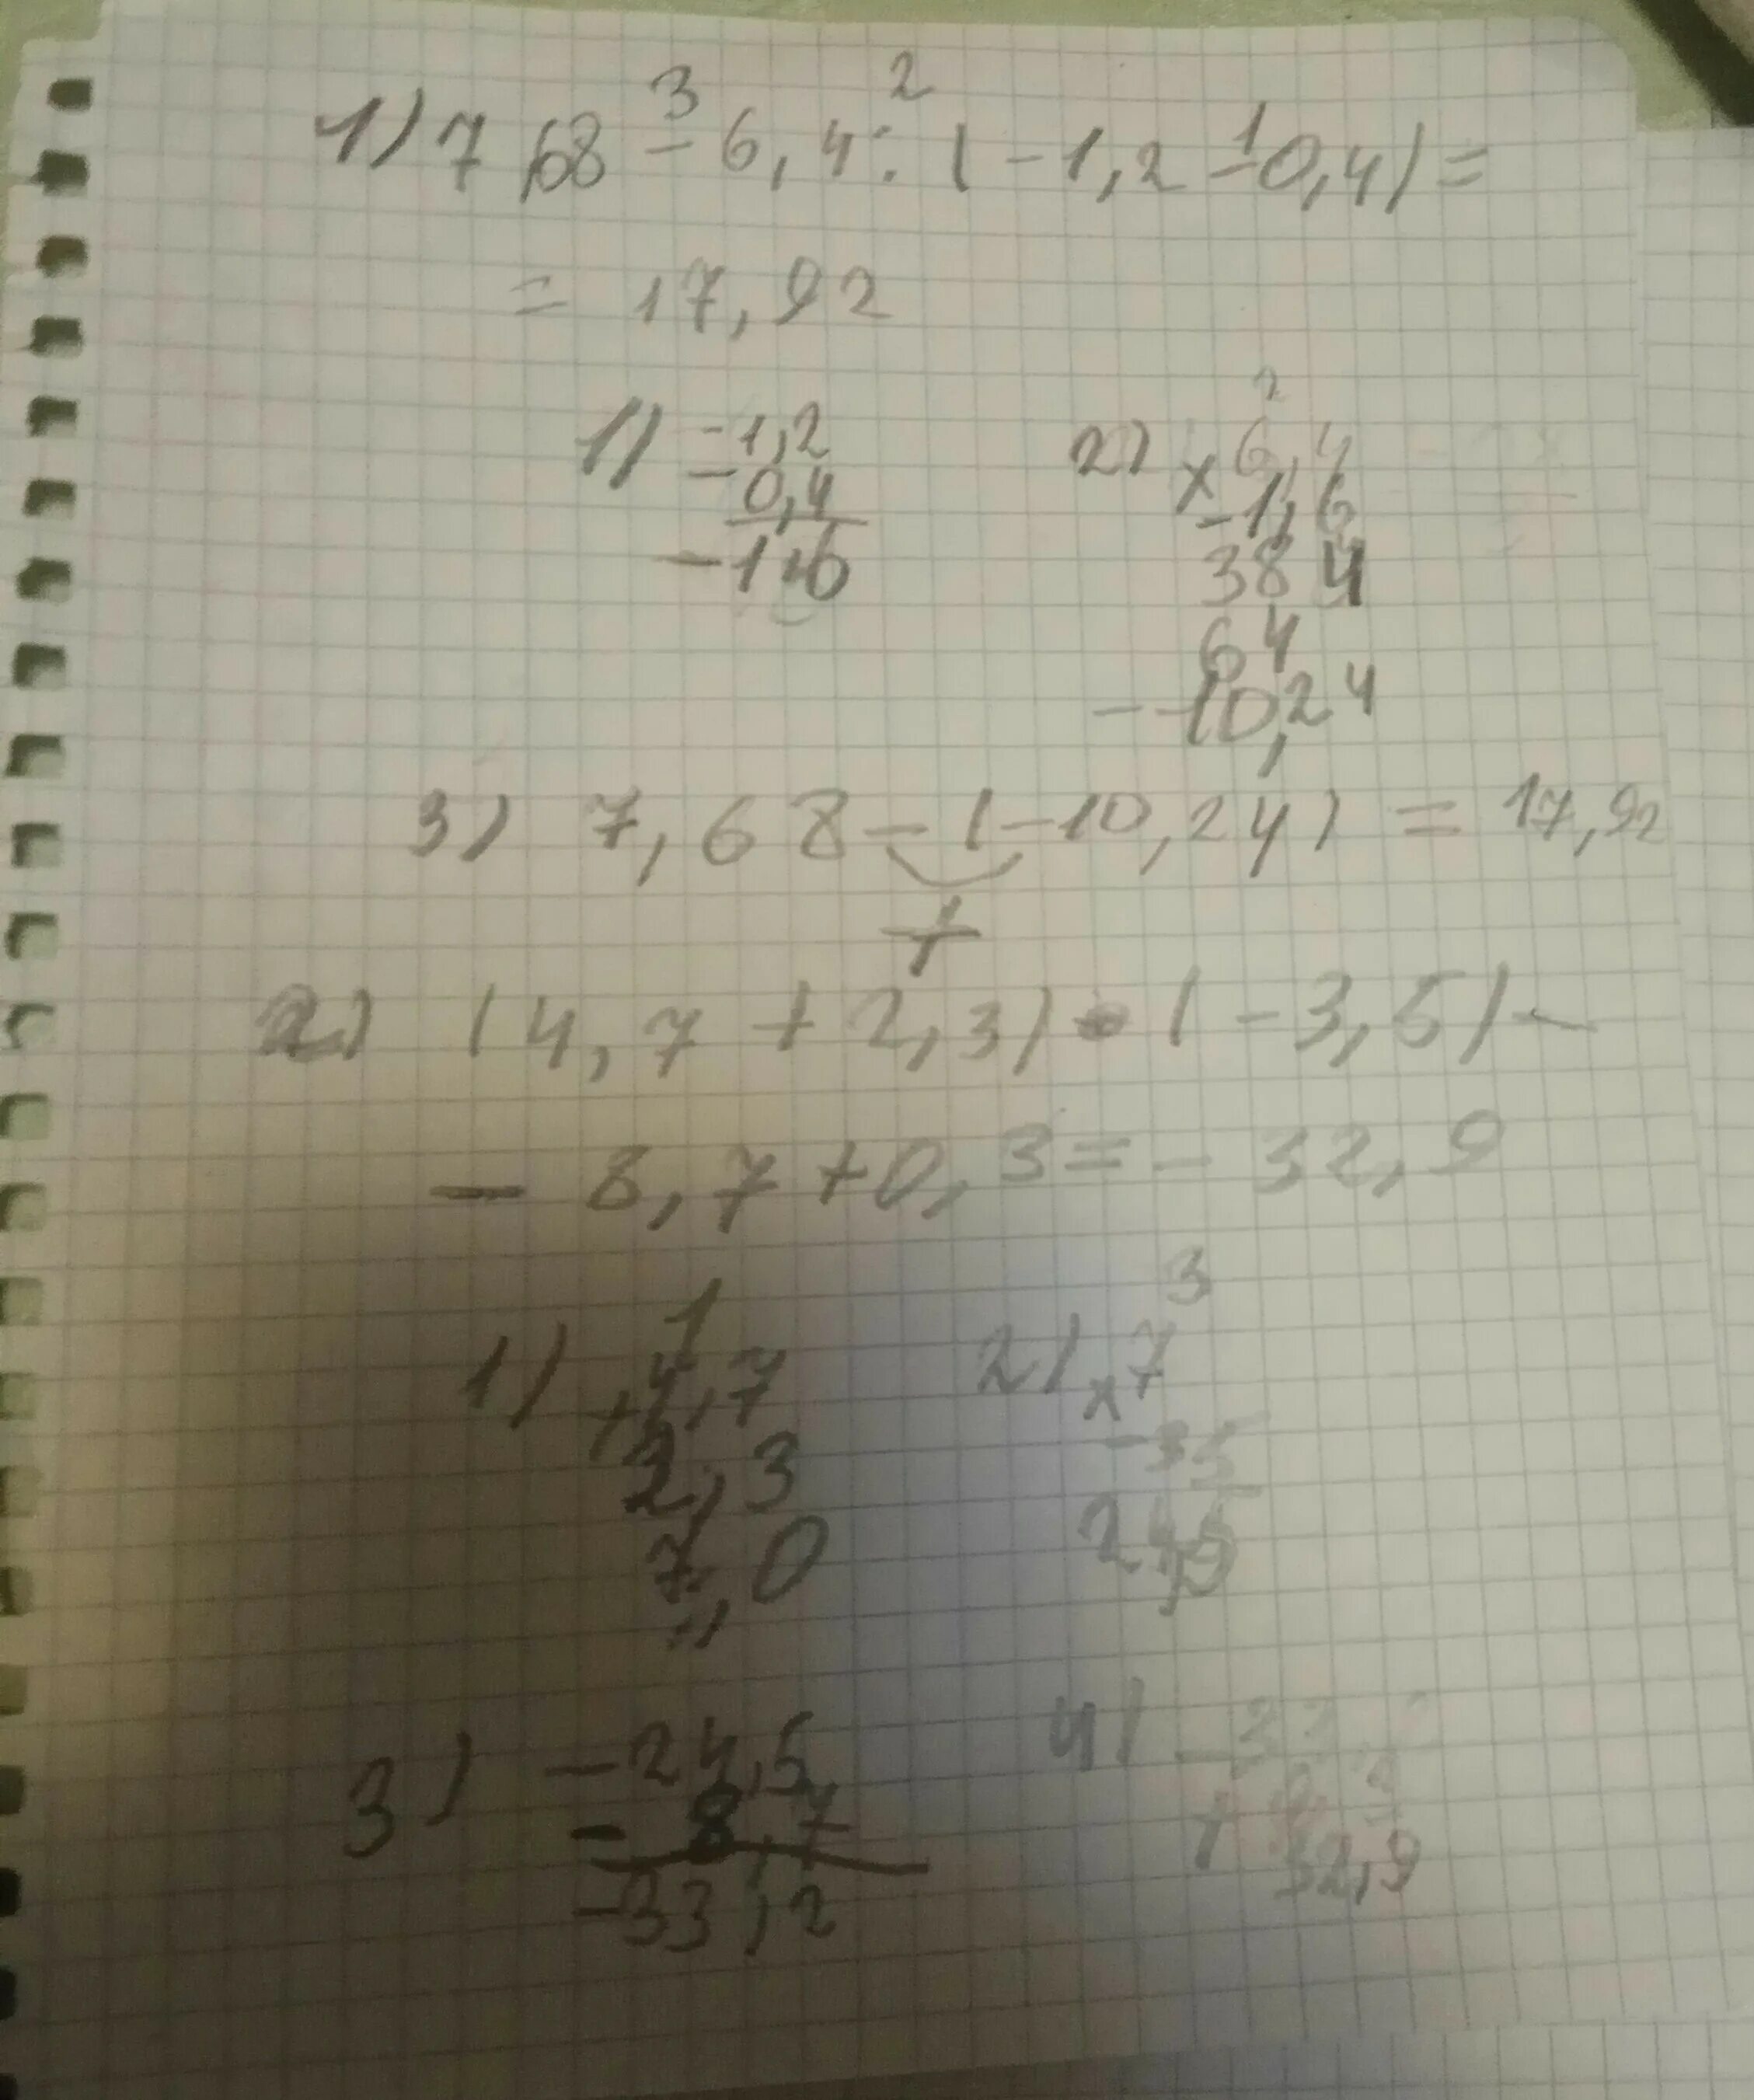 1) 7,68 - 6,4 : (-1,2 - 0,4) =
3 2 1
= 17,92
1) -1,2
- 0,4
-1,6
2) 6,4
2
× -1,6
384
64
-10,24
3) 7,68 - (-10,24) = 17,92
+
2) (4,7 + 2,3) • (-3,5) -
- 8,7 + 0,3 = - 32,9
1) 4,7
1
+ 2,3
7,0
2) 7
3
× -35
24,5
3) -24,5
- 8,7
-33,2
4)
+
32,9